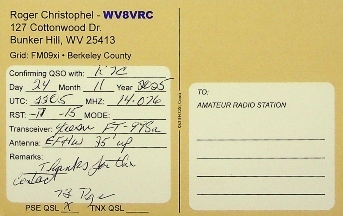 Roger Christophel - WV8VRC
127 Cottonwood Dr.
Bunker Hill, WV 25413
Grid: FM09xi • Berkeley County
Confirming QSO with:
Day 24 Month 11 Year 2025
UTC: MHZ: 14.076
RST: -15 MODE:
Transceiver: Yaesu FT-
Antenna: EFHW 35' up
Remarks:
Thanks for the
contact
73 Roger
PSE QSL X TNX QSL
TO:
AMATEUR RADIO STATION